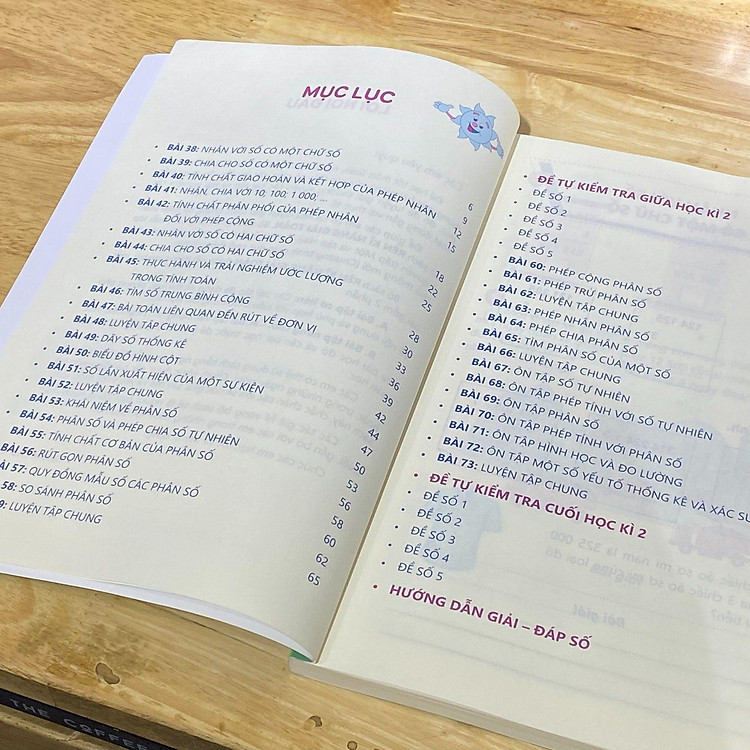 MỤC LỤC
• BÀI 38: NHÂN VỚI SỐ CÓ MỘT CHỮ SỐ 6
• BÀI 39: CHIA CHO SỐ CÓ MỘT CHỮ SỐ 9
• BÀI 40: TÍNH CHẤT GIAO HOÁN VÀ KẾT HỢP CỦA PHÉP NHÂN 12
• BÀI 41: NHÂN, CHIA VỚI 10; 100; 1 000; ... 15
• BÀI 42: TÍNH CHẤT PHÂN PHỐI CỦA PHÉP NHÂN
ĐỐI VỚI PHÉP CỘNG 18
• BÀI 43: NHÂN VỚI SỐ CÓ HAI CHỮ SỐ 22
• BÀI 44: CHIA CHO SỐ CÓ HAI CHỮ SỐ 25
• BÀI 45: THỰC HÀNH VÀ TRẢI NGHIỆM ƯỚC LƯỢNG
TRONG TÍNH TOÁN 28
• BÀI 46: TÌM SỐ TRUNG BÌNH CỘNG 30
• BÀI 47: BÀI TOÁN LIÊN QUAN ĐẾN RÚT VỀ ĐƠN VỊ 33
• BÀI 48: LUYỆN TẬP CHUNG 36
• BÀI 49: DÃY SỐ THỐNG KÊ 39
• BÀI 50: BIỂU ĐỒ HÌNH CỘT 42
• BÀI 51: SỐ LẦN XUẤT HIỆN CỦA MỘT SỰ KIỆN 44
• BÀI 52: LUYỆN TẬP CHUNG 47
• BÀI 53: KHÁI NIỆM VỀ PHÂN SỐ 50
• BÀI 54: PHÂN SỐ VÀ PHÉP CHIA SỐ TỰ NHIÊN 53
BÀI 55: TÍNH CHẤT CƠ BẢN CỦA PHÂN SỐ 56
BÀI 56: RÚT GỌN PHÂN SỐ 58
57: QUY ĐỒNG MẪU SỐ CÁC PHÂN SỐ 60
58: SO SÁNH PHÂN SỐ 62
9: LUYỆN TẬP CHUNG 65
• ĐỀ TỰ KIỂM TRA GIỮA HỌC KÌ 2
• ĐỀ SỐ 1
• ĐỀ SỐ 2
• ĐỀ SỐ 3
• ĐỀ SỐ 4
• ĐỀ SỐ 5
• BÀI 60: PHÉP CỘNG PHÂN SỐ
• BÀI 61: PHÉP TRỪ PHÂN SỐ
• BÀI 62: LUYỆN TẬP CHUNG
• BÀI 63: PHÉP NHÂN PHÂN SỐ
• BÀI 64: PHÉP CHIA PHÂN SỐ
• BÀI 65: TÌM PHÂN SỐ CỦA MỘT SỐ
• BÀI 66: LUYỆN TẬP CHUNG
• BÀI 67: ÔN TẬP SỐ TỰ NHIÊN
• BÀI 68: ÔN TẬP PHÉP TÍNH VỚI SỐ TỰ NHIÊN
• BÀI 69: ÔN TẬP PHÂN SỐ
• BÀI 70: ÔN TẬP PHÉP TÍNH VỚI PHÂN SỐ
• BÀI 71: ÔN TẬP HÌNH HỌC VÀ ĐO LƯỜNG
• BÀI 72: ÔN TẬP MỘT SỐ YẾU TỐ THỐNG KÊ VÀ XÁC SU
• BÀI 73: LUYỆN TẬP CHUNG
• ĐỀ TỰ KIỂM TRA CUỐI HỌC KÌ 2
• ĐỀ SỐ 1
• ĐỀ SỐ 2
• ĐỀ SỐ 3
• ĐỀ SỐ 4
• ĐỀ SỐ 5
• HƯỚNG DẪN GIẢI – ĐÁP SỐ
THE COFFEE